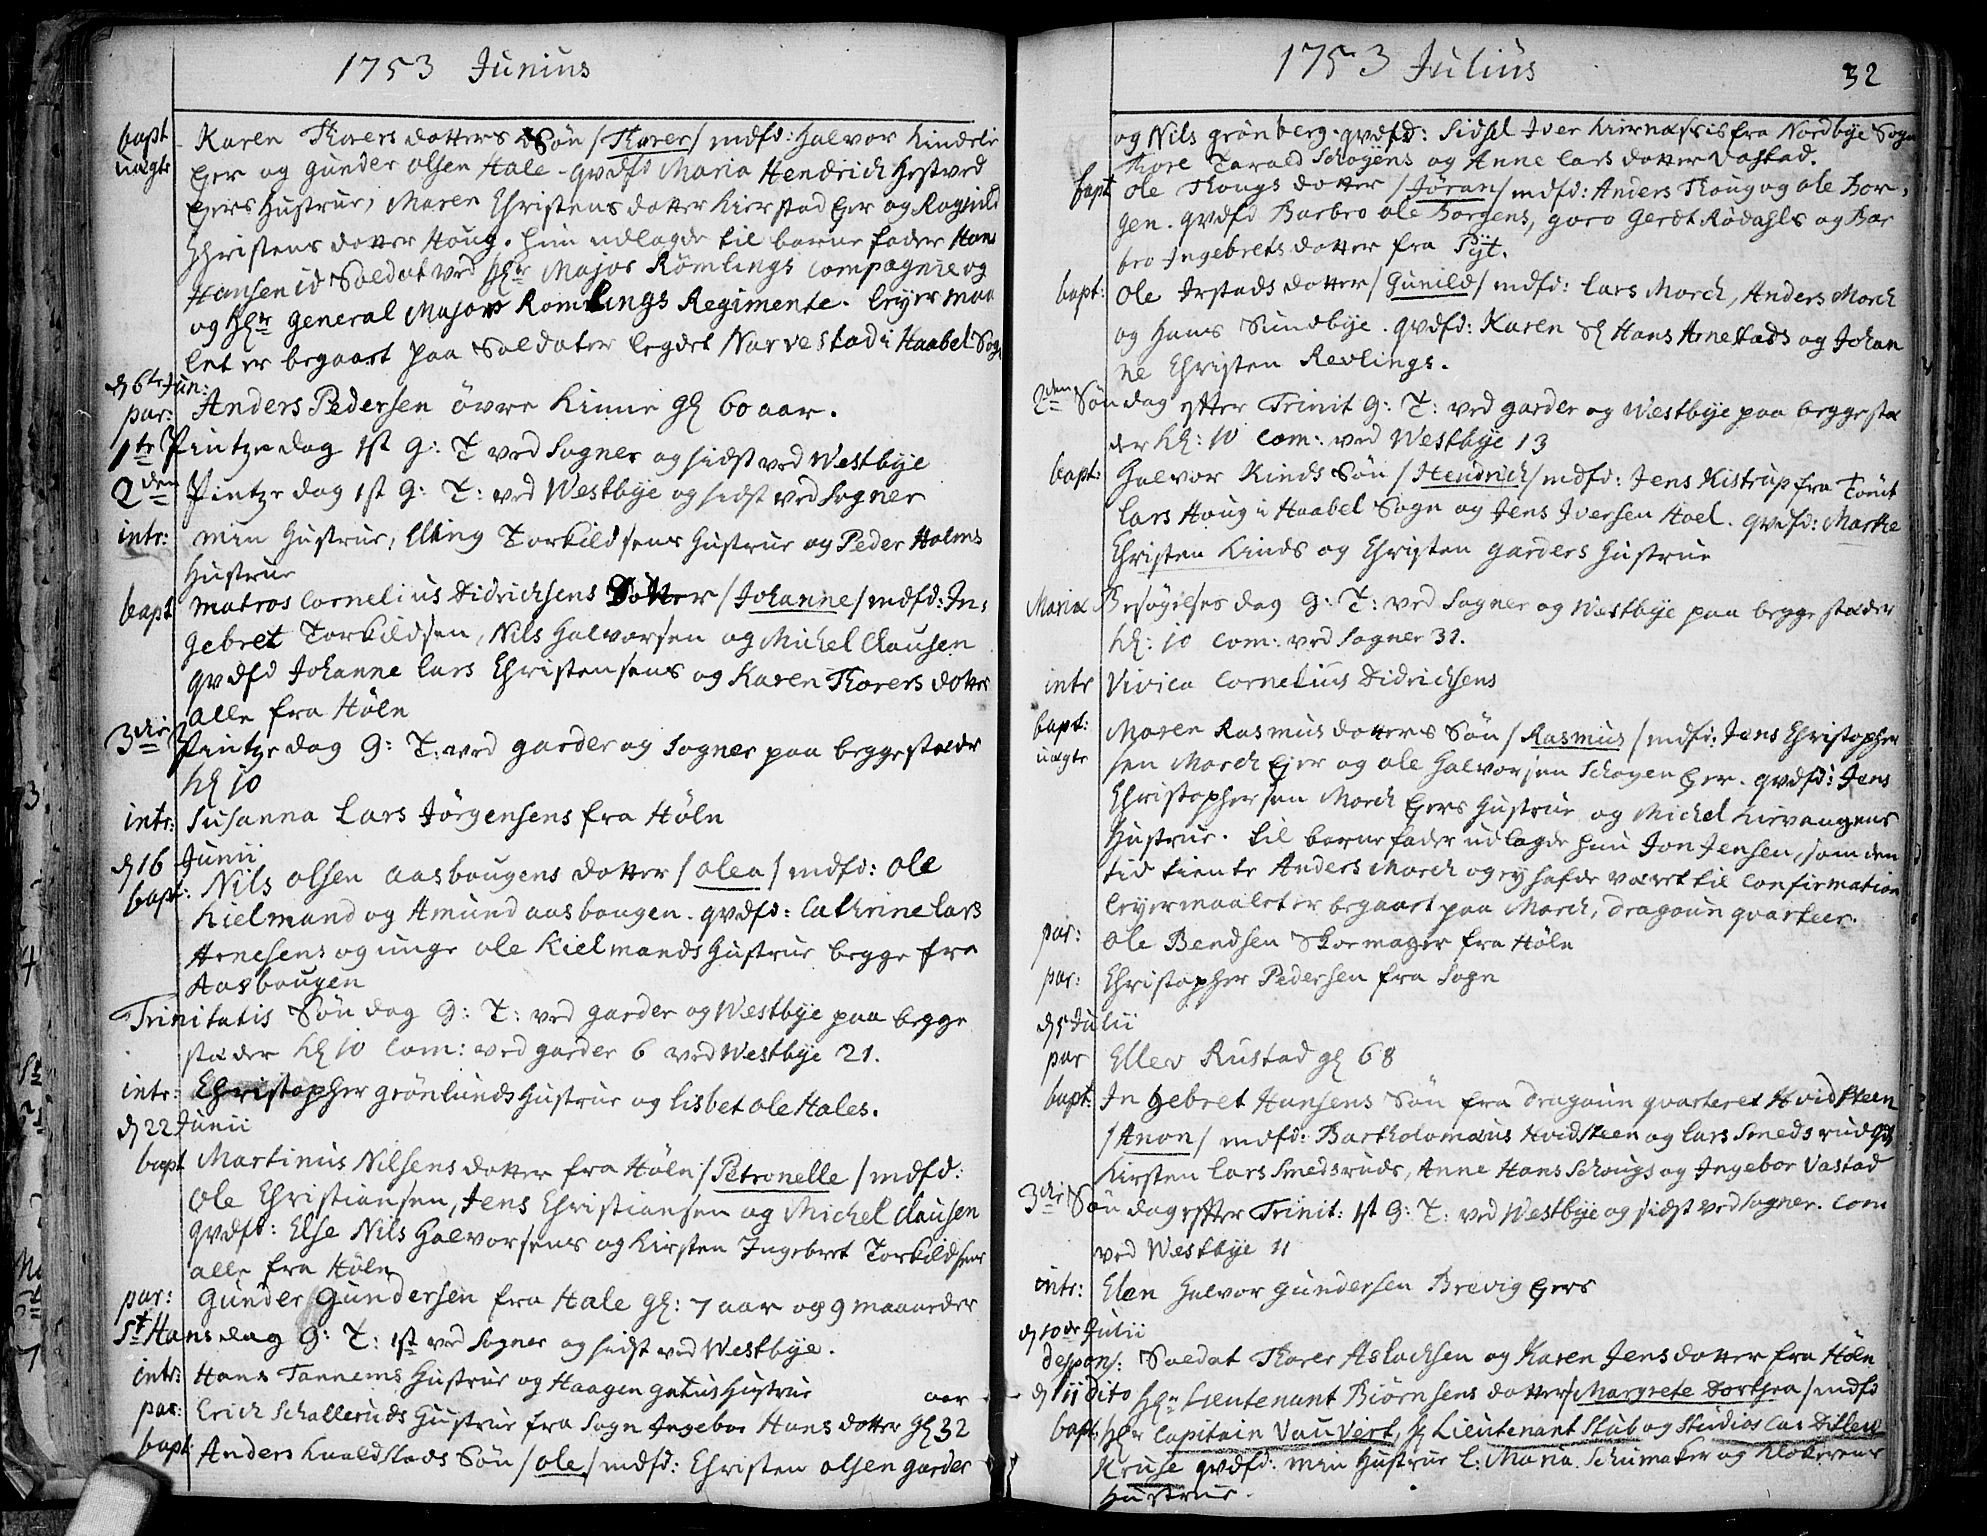 1753 Junius
bapt Karen Thorers dotters Søn /Thorer/ mdfd: Halvor Kindelie
uægte Eger og Gunder Olsen Hale. qvdfd Maria Hendrich Hestved
Eyers Hustrue, Maren Christens dotter Kierstad Eyer og Ragnild
Christens dotter Houg. hun udlagde til barne fader Hans
Hansen id Soldat ved Hr Major Römlings Compagnie og
og Hr General Major Romlings Regimente. leyer maa
let er begaaet paa Soldater legdet Narvestad i Haabel Sogn
d 6te Jun:
par: Anders Pedersen övre Kinnie gl 60 aar.
1te Pintze dag 1st G: T ved Sogner og sidst ved Westbye
2den Pintze dag 1st G: T: ved Westbye og sidst ved Sogner
intr: min Hustrue, Elling Torkildsens Hustrue og Peder Holms
Hustrue
bapt matros Cornelius Didrichsens Dotter /Johanne/ mdfd: In,
gebret Torkildsen, Nils Halvorsen og Michel Clausen
qvdfd Johanne Lars Christensens og Karen Thorers dotter
alle fra Höln
3die Pintze dag G: T: ved Garder og Sogner paa begge stæder
kl 10
intr: Susanna Lars Jörgensens fra Höln
d 16 Junii
bapt: Nils Olsen Aasbougens dotter /Olea/ mdfd: Ole
Kielmand og Amund Aasbougen. qvdfd: Cathrine Lars
Arnesens og unge Ole Kielmands Hustrue begge fra
Aasbougen
Trinitatis Søndag G: T: ved Garder og Westbye paa begge
stæder kl 10 Com: ved Garder 6 ved Westbye 21.
intr: Christopher Grönlunds Hustrue og Lisbet Ole Hales.
d 22 Junii
bapt Martinus Nilsens dotter fra Höln /Petronelle/ mdfd:
Ole Christiansen, Jens Christiansen og Michel Clausen
qvdft: Else Nils Halvorsens og Kirsten Ingebret Torkildsens
alle fra Höln
par: Gunder Gundersen fra Hale gl: 7 aar og 9 maaneder
St Hans dag G: T: 1st ved Sogner og sidst ved Westbye.
intr: Hans Tannems Hustrue og Haagen Hustrue
par: Erich Schalleruds Hustrue fra Sogn Ingebor Hans dotter gl 32 aar
bapt Anders Kualdstads Søn /Ole/ mdfd: Christen Olsen Garder
1753 Julius 32
og Nils Grönberg. qvdfd: Sidsel Iver Kiernæssis fra Nordbye Sogn
Thore Tarald Schoyens og Anne Lars dotter Vastad.
bapt Ole Thougs dotter /Jöran/ mdfd: Anders Thoug og Ole Bor,
gen. qvdfd Barbro Ole Borgens, Goro Gerdt Rödahls og Bar
bro Ingebrets dotter fra Pÿt.
bapt: Ole Irstads dotter /Gunild/ mdfd: Lars Morch, Anders Morch
og Hans Sundbye. qvdfd: Karen Sl Hans Arnestads og Johan
ne Christen Revlings.
2den Søndag efter Trinit G: T: ved Garder og Westbye paa begge stæ
der kl: 10 Com: ved Westbye 13
bapt: Halvor Kinds Søn /Hendrich/ mdfd: Jens Kistrup fra Tomt
Lars Houg i Haabel Sogn og Jens Iversen Hoel. qvdfd: Marthe
Christen Kinds og Christen Garders Hustrue
Mariæ Besøgelses dag G: T: ved Sogner og Westbye paa begge stæder
kl: 10 Com: ved Sogner 31.
intr Vivica Cornelius Didrichsens
bapt: Maren Rasmus dotters Søn /Rasmus/ mdfd: Jens Christopher
uægte sen Morch Eyer og Ole Halvorsen Schoyen Eyer. qvdfd: Jens
Christophersen Morch Eyers Hustrue og Michel Kirvangens
Hustrue. til barne fader udlagde hun Jon Jensen, som den
tid tiente Anders Morch og ey hafde været til Confirmation
leyermaalet er begaaet paa Morch, Dragoun qvarteer.
par: Ole Bendsen Skomager fra Höln
par: Christopher Pedersen fra Sogn
d 5 Julii
par Ellev Rustad gl 68
bapt: Ingebret Hansens Søn fra Dragoun qvarteret Hvidsteen
/Anon/ mdfd: Bartholomæus Hvidsteen og Lars Smedsrud
Kirsten Lars Smedsruds, Anne Hans Schougs og Ingebor Vastad
3die Søndag efter Trinit: 1st G: T: ved Westbye og sidst ved Sogner. Com
ved Westbye 11
intr: Elen Halvor Gundersen Brevig Eyers
d 10de Julii
despons: Soldat Thorer Aslachsen og Karen Jens dotter fra Höln
d 11 dito Hr Lieutenant Biörnsens dotter /Margrete Dorthea/ mdfd
bapt: Hr Capitain Vauvert, Hr Lieutenant Stub og Studios
Kruse qvdfd: min Hustrue L: Maria Schumaker og Klokerens
Hustrue.